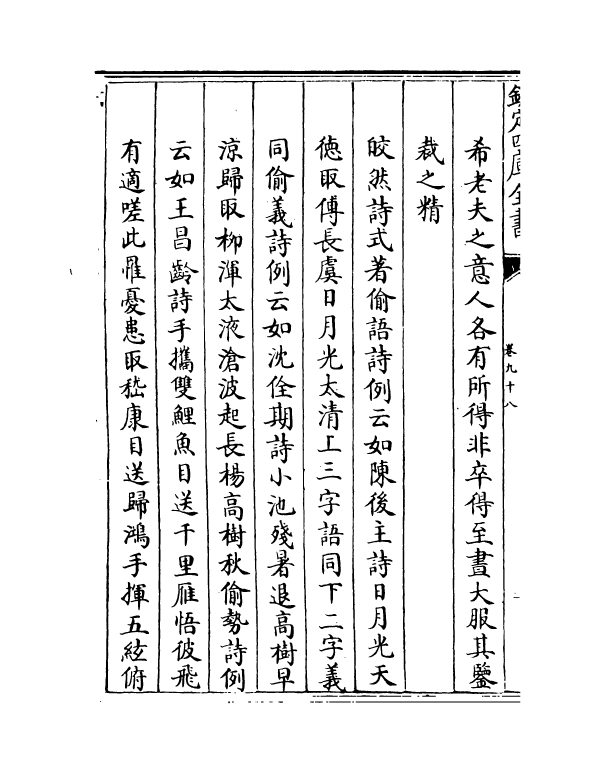 欽定四庫全書
卷九十八
希老夫之意人各有所得非卒得至晝大服其鑒
裁之精
皎然詩式著偷語詩例云如陳後主詩日月光天
徳取傅長虞日月光太清上三字語同下二字義
同偷義詩例云如沈佺期詩小池殘暑退高樹早
涼歸取柳渾太液滄波起長楊高樹秋偷勢詩例
云如王昌齡詩手攜雙鯉魚目送千里雁悟彼飛
有適嗟此罹憂患取嵇康目送歸鴻手揮五絃俯